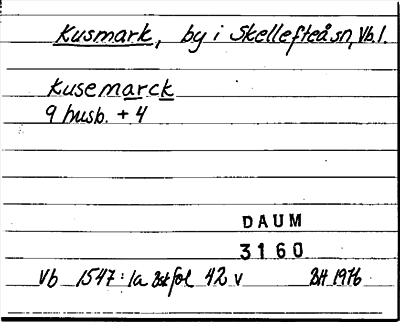 Kusmark, by i Skellefteå sn, Vb. l.
Kusemarck
9 husb. + 4
DAUM
3160
Vb 1547: 1a Bst fol 42 v BH 1976